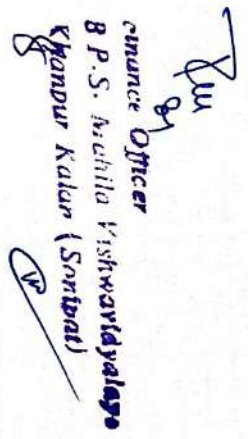 Finance Officer
B P.S. Mahila Vishwavidyalaya
Khanpur Kalan (Sonipat)